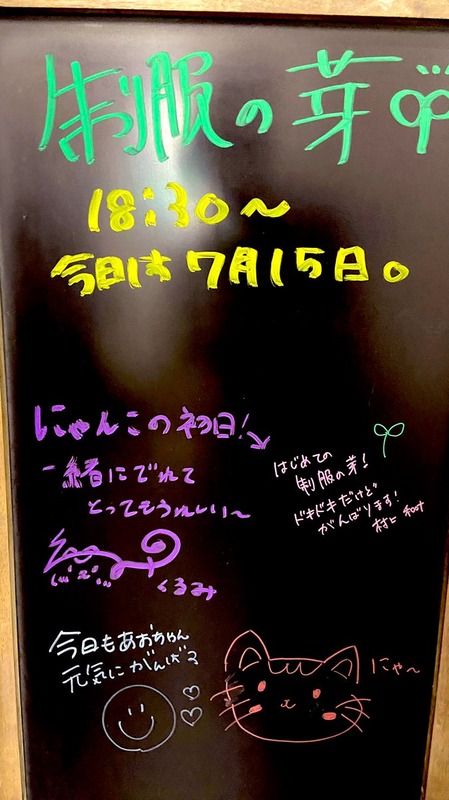 制服の芽
18:30～
今日は7月15日。
にゃんこの初日!
一緒にでれて
とってもうれしい～
くるみ
はじめての
制服の芽!
ドキドキだけど
がんばります!
今日もあおちゃん
元気にがんばる
にゃ～